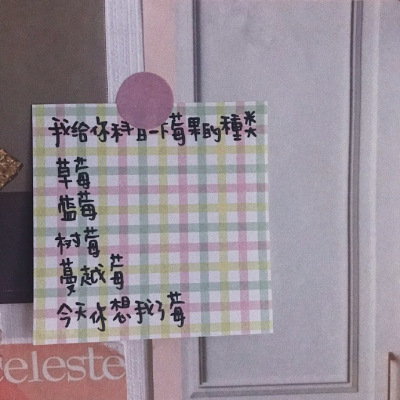 我给你科日一下莓果的種类
草莓
蓝莓
树莓
蔓越莓
今天你想我了莓
celeste